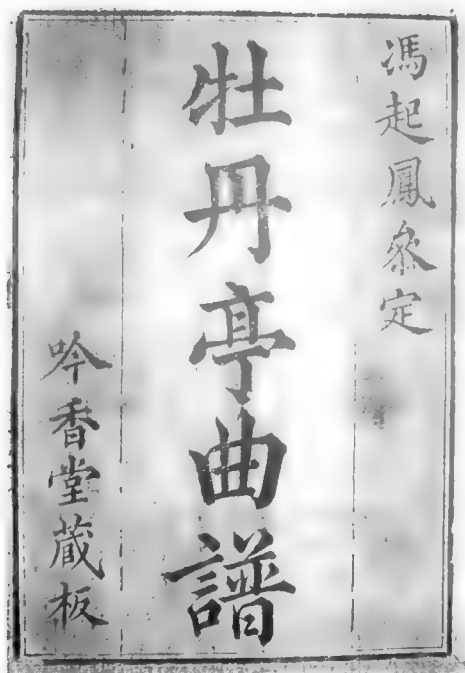 馮起鳳叅定
牡丹亭曲譜
吟香堂蔵板